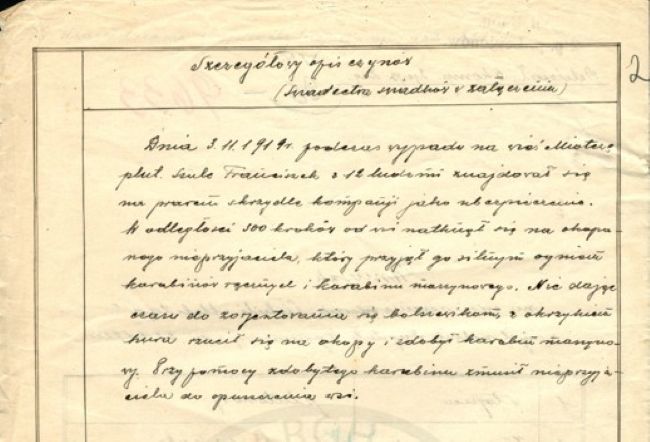 2
Szczegółowy opis czynów
(Świadectra świadków w załączeniu)
Dnia 3.11.1919r. podczas wypadu na wieś
plut. Szulc Franciszek z 12 ludźmi znajdował się
na prawem skrzydle kompanji jako ubezpieczenie.
W odległości 300 kroków od wsi natknął się na okopa-
nego nieprzyjaciela, który przyjął go silnym ogniem
karabinów ręcznych i karabinu maszynowego. Nie dając
czasu do zorjentowania się bolszewikom, z okrzykiem
hura rzucił się na okopy i zdobył karabin maszyno-
wy. Przy pomocy zdobytego karabinu zmusił nieprzyja-
ciela do opuszczenia wsi.